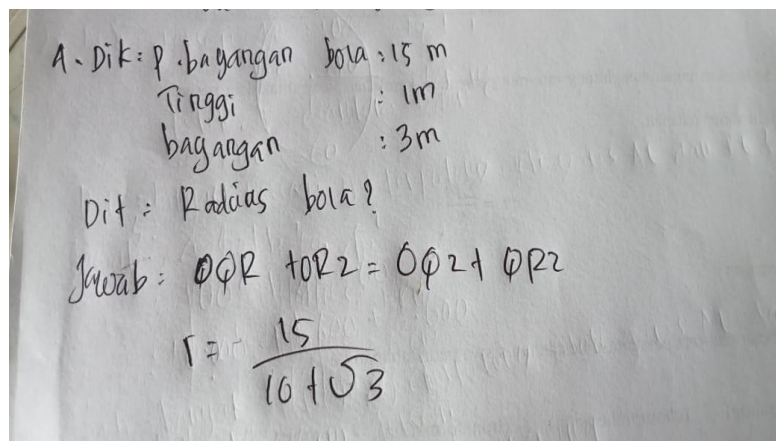 A. Dik: P. bayangan bola : 15 m
Tinggi : 1m
bayangan : 3m
Dit : Radias bola?
Jawab : OQR tOR2 = OQ2+ QR2
r = 15
10+√3